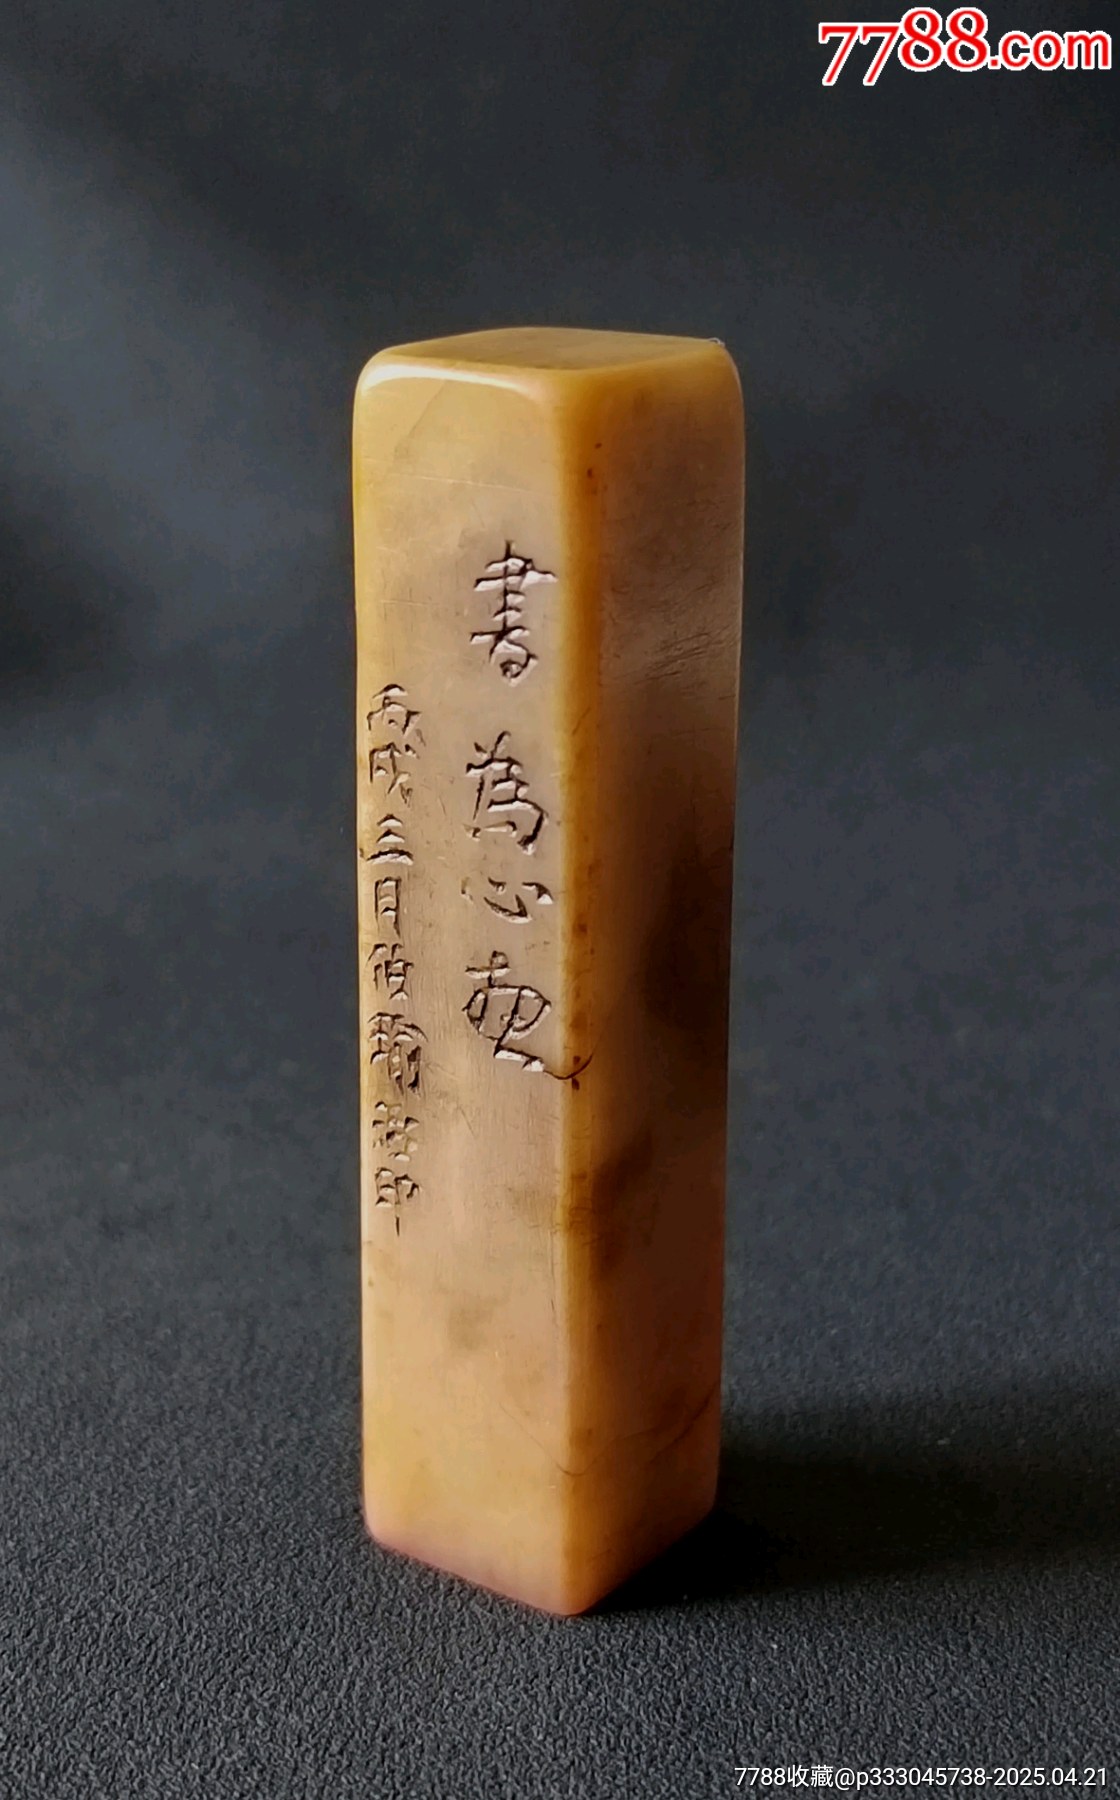 7788.com
書為心画
丙戌三月伯瑜書印
7788收藏@p333045738-2025.04.21